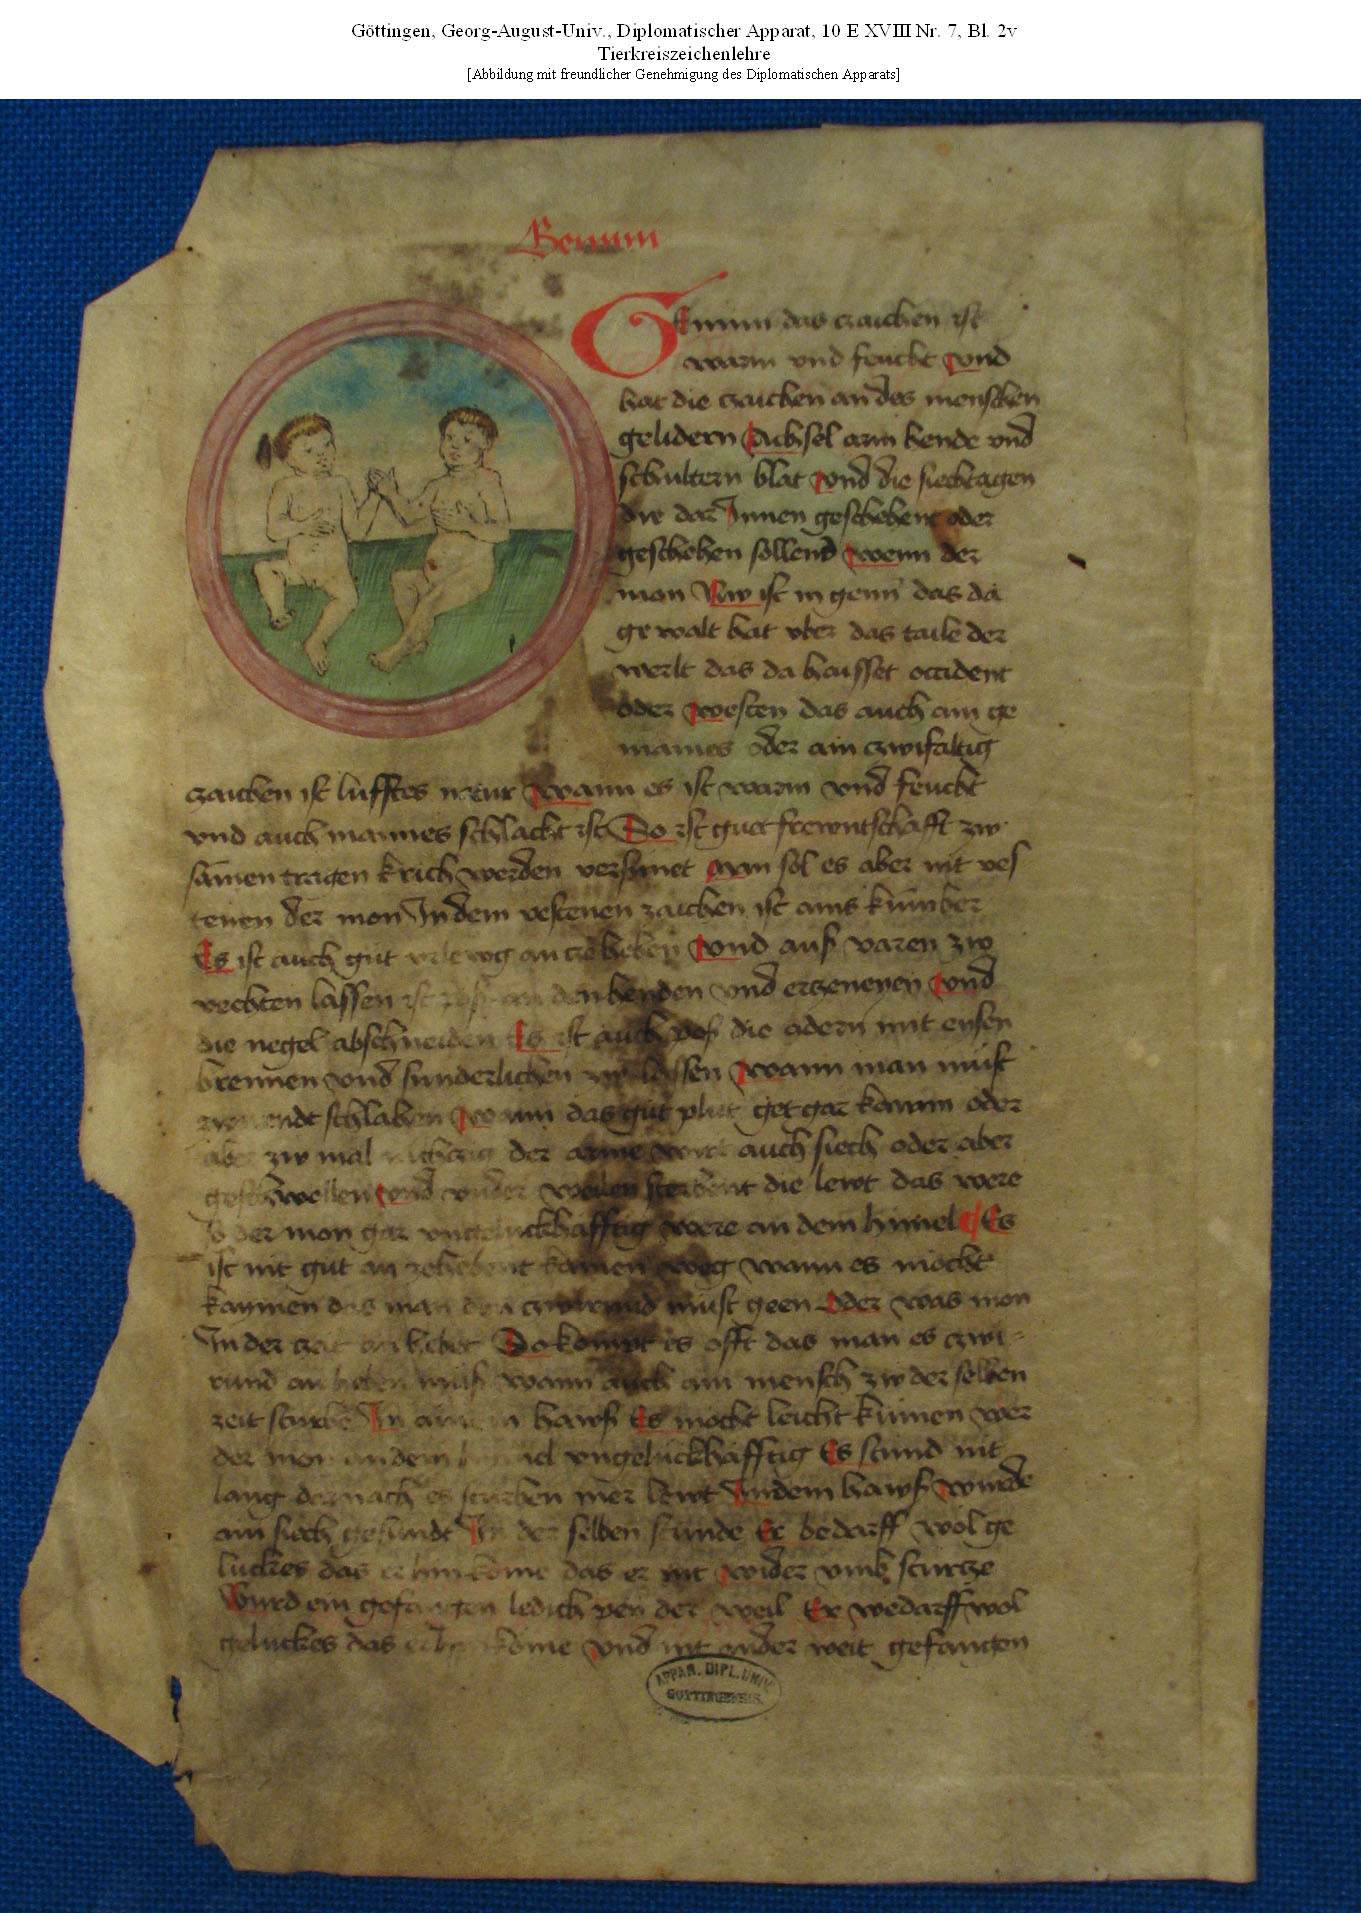 Göttingen, Georg-August-Univ., Diplomatischer Apparat, 10 E XVIII Nr. 7, Bl. 2v
Tierkreiszeichenlehre
[Abbildung mit freundlicher Genehmigung des Diplomatischen Apparats]
Gemini
Gemini das czaichen ist
warm vnd feucht vnd
hat die czaichen an des menschen
gelidern Achsel arm hende vnd
schultern blat vnd die siechtagen
die dar Innen geschehent oder
geschehen sollend wenn der
mon Nw ist in gemi das da
gewalt hat vber das taile der
werlt das da haisset occident
oder westen das auch ain ge
maines oder ain czwifaltig
czaichen ist lufftes natur wann es ist warm vnd feucht
vnd auch mannes schlacht ist Do ist guet frewntschafft zw
samen tragen krieh werden versunet Man sol es aber nit ves
tenen der mon In dem vestenen zaichen ist ains
Es ist auch gut an czeheben vnd auß varen zw
vechten lassen ist an den henden vnd erczeneyen vnd
die negel abschneiden Es ist auch poß die adern mit eysen
brennen vnd sunderlichen zw lassen wann man must
schlahen wann das gut plut get gar kaum oder
aber zw mal der arme wirt auch siech oder aber
geschwollen vnd vnder weilen sterbent die lewt das were
der mon gar vngeluckhafftig were an dem himel Es
ist nit gut an zehebent kainen weg wann es mocht
kaymen das man den czwirund must geen Oder was mon
In der czeit an hebet Do kompt es offt das man es czwi-
rund an heben muß wann auch ain mensch zw der selben
zeit sturbe In ainem hawß Es mocht leicht kumen wer
der mon an dem himel vngeluckhafftig Es stund nit
lang darnach es sturben mer lewt In dem hawß wurde
ain siech gesundt In der selben stunde Er bedarff wol ge
luckes das er hin kome das er nit wider vmb sturcze
Wurd ein gefangen ledich der weil Er wedarff wol
geluckes das er kome vnd nit ander weit gefangen
APPAR. DIPL. UNIV.
GOTTINGENSIS.